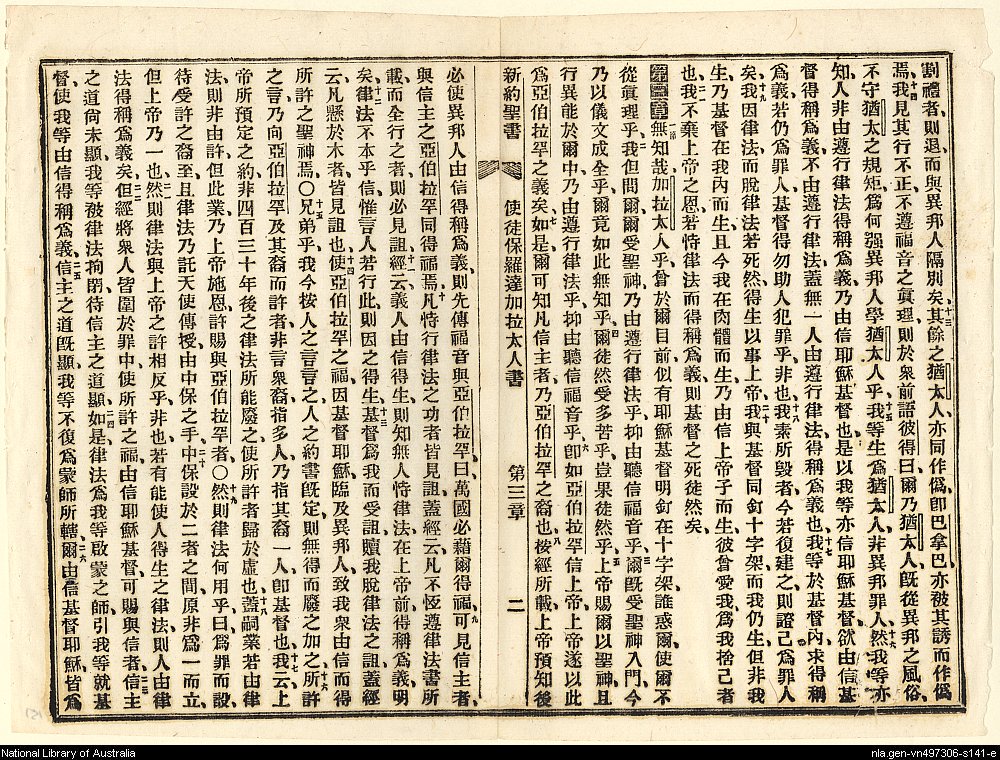 割禮者、則退而與異邦人隔別矣、其餘之猶太人、亦同作僞、卽巴拿巴亦被其誘而作僞
焉、我見其行不正、不遵福音之眞理、則於衆前語彼得曰、爾乃猶太人、旣從異邦之風俗、
不守猶太之規矩、爲何强異邦人學猶太人乎、我等生爲猶太人、非異邦罪人、然我等亦
知、人非由遵行律法得稱爲義、乃由信耶穌基督也、是以我等亦信耶穌基督、欲由信基
督得稱爲義、不由遵行律法、蓋無一人由遵行律法得稱爲義也、我等於基督內求得稱
爲義、若仍爲罪人、基督得勿助人犯罪乎、非也、我素所毀者、今若復建之、則證己爲罪人
矣、我因律法而脫律法若死然、得生以事上帝、我與基督同釘十字架、而我仍生、但非我
生、乃基督在我內而生、且今我在肉體而生、乃由信上帝子而生、彼曾愛我、爲我捨己者
也、我不棄上帝之恩、若恃律法而得稱爲義、則基督之死徒然矣、
第三章無知哉加拉太人乎、曾於爾目前、似有耶穌基督明釘在十字架、誰惑爾使爾不
從眞理乎、我但問爾、爾受聖神、乃由遵行律法乎、抑由聽信福音乎、爾旣受聖神入門、今
乃以儀文成全乎、爾竟如此無知乎、爾徒然受多苦乎、豈果徒然乎、上帝賜爾以聖神、且
行異能於爾中、乃由遵行律法乎、抑由聽信福音乎、卽如亞伯拉罕信上帝、上帝遂以此
爲亞伯拉罕之義矣、如是、爾可知凡信主者、乃亞伯拉罕之裔也、按經所載、上帝預知後
新約聖書 使徒保羅達加拉太人書 第三章 二
必使異邦人由信得稱爲義、則先傳福音與亞伯拉罕曰、萬國必藉爾得福、可見信主者、
與信主之亞伯拉罕同得福焉、凡恃行律法之功者、皆見詛、蓋經云、凡不恆遵律法書所
載、而全行之者、則必見詛、經云、義人由信得生、則知無人恃律法、在上帝前、得稱爲義、明
矣、律法不本乎信、惟言人若行此、則因之得生、基督爲我而受詛、贖我脫律法之詛、蓋經
云、凡懸於木者、皆見詛也、使亞伯拉罕之福、因基督耶穌、臨及異邦人、致我衆由信而得
所許之聖神焉、○兄弟乎、我今按人之言言之、人之約書旣定、則無得而廢之加之、所許
之言、乃向亞伯拉罕及其裔而許者、非言衆裔指多人、乃指其裔一人、卽基督也、我云、上
帝所預定之約、非四百三十年後之律法所能廢之、使所許者歸於虛也、蓋嗣業若由律
法、則非由許、但此業乃上帝施恩、許賜與亞伯拉罕者、○然則律法何用乎、曰、爲罪而設、
待受許之裔至、且律法乃託天使傳授、由中保之手、中保設於二者之間、原非爲一而立、
但上帝乃一也、然則律法與上帝之許相反乎、非也、若有能使人得生之律法、則人由律
法得稱爲義矣、但經將衆人皆圍於罪中、使所許之福、由信耶穌基督、可賜與信者、信主
之道尙未顯、我等被律法拘閉、待信主之道顯、如是、律法爲我等啟蒙之師、引我等就基
督、使我等由信得稱爲義、信主之道旣顯、我等不復爲蒙師所轄、爾由信基督耶穌、皆爲
National Library of Australia
nla.gen-vn497306-s141-e